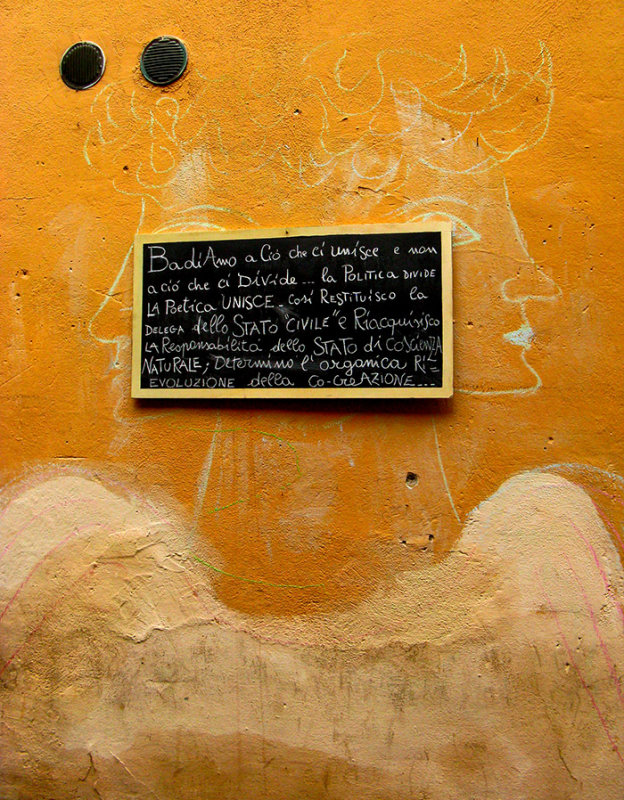 BadiAmo a Ciò che ci uniSce e non
a ciò che ci Divide ... la POLITICA DIVIDE
LA Poetica UNISCE.. Così RESTITUisco la
DELEGA dello STATO CIVILE" e Riacquisisco
LA Responsabilità dello STATO di CoSCIENZA
NATURALE; Determino l'organica RI=
EVOLUZIONE della Co-CreAZIONE...